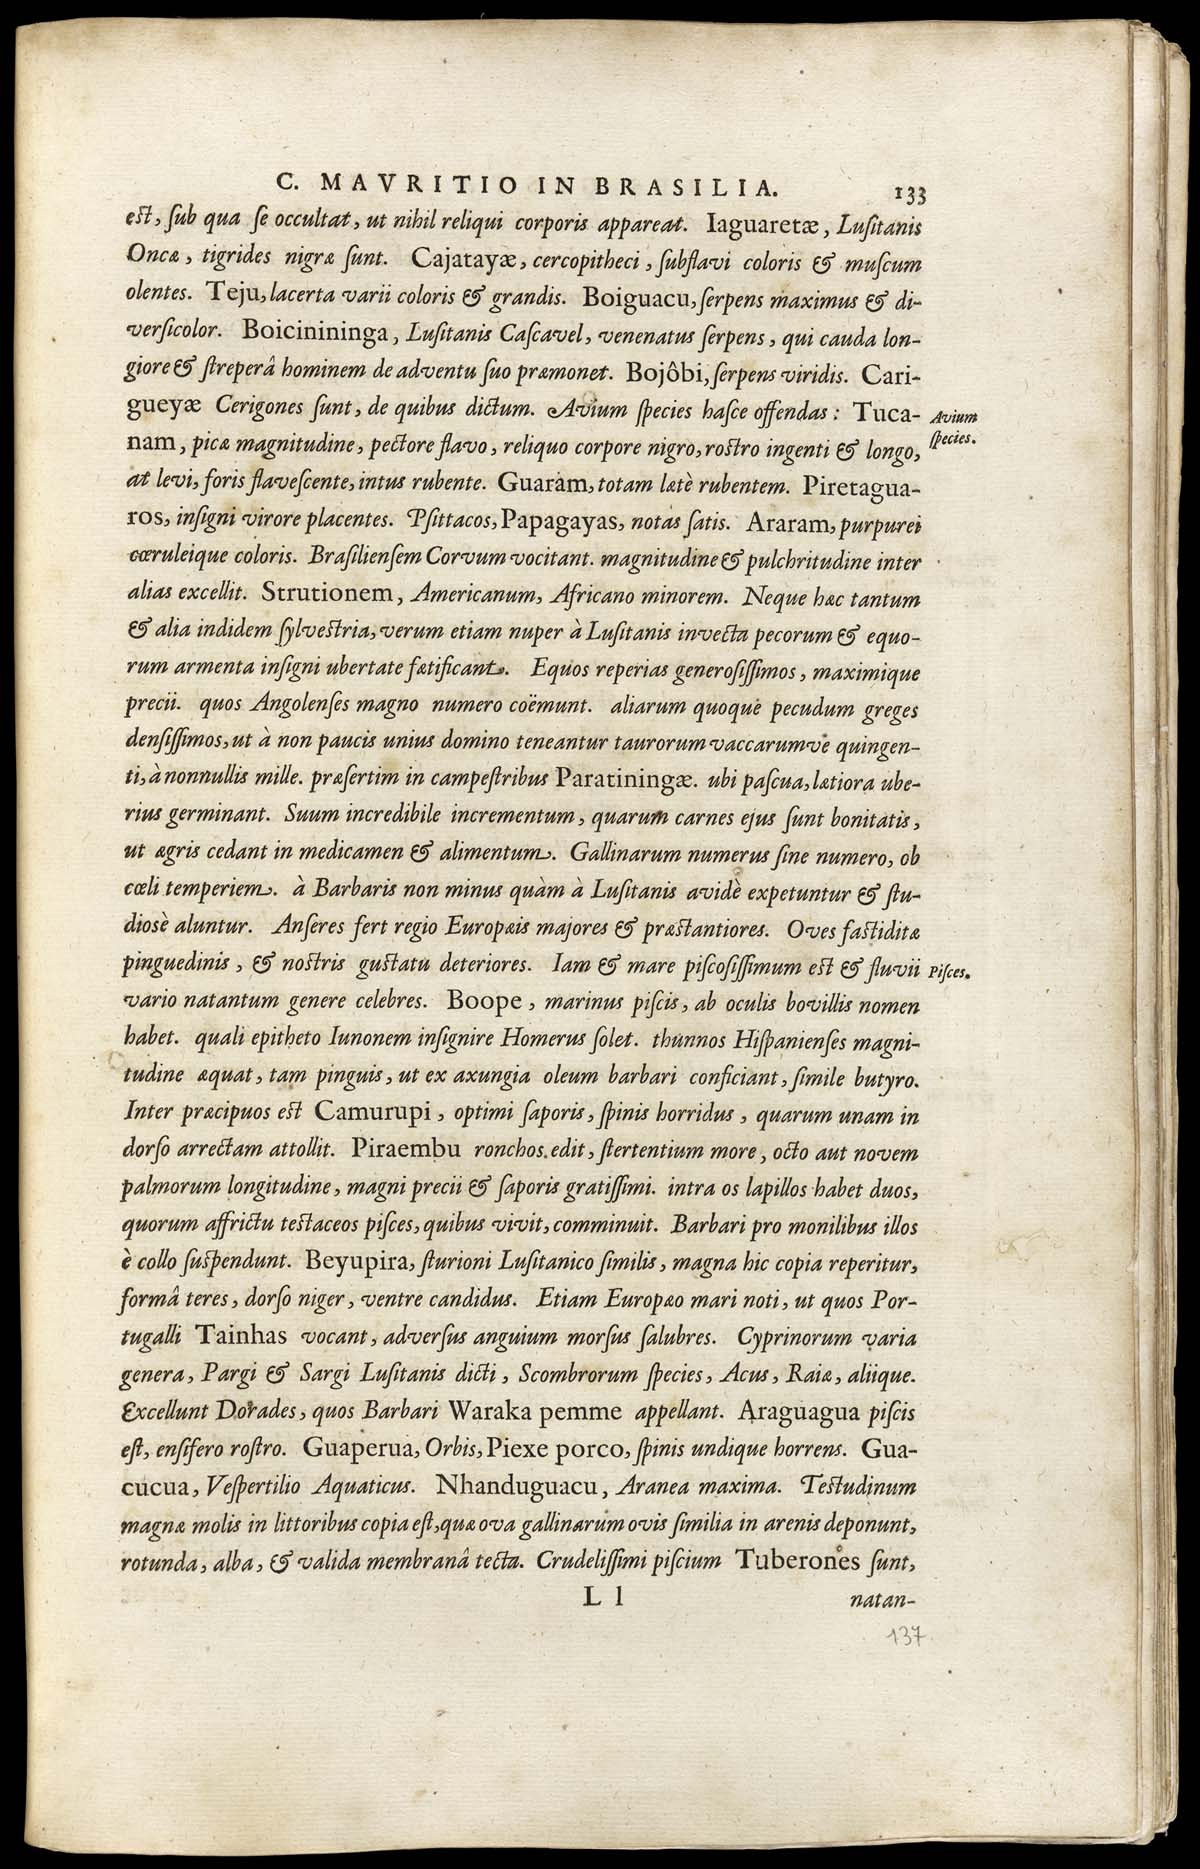 C. MAVRITIO IN BRASILIA. 133
est, sub qua se occultat, ut nihil reliqui corporis appareat. Iaguaretæ, Lusitanis
Oncæ, tigrides nigræ sunt. Cajatayæ, cercopitheci, subflavi coloris & muscum
olentes. Teju, lacerta varii coloris & grandis. Boiguacu, serpens maximus & di-
versicolor. Boicinininga, Lusitanis Cascavel, venenatus serpens, qui cauda lon-
giore & streperâ hominem de adventu suo præmonet. Bojôbi, serpens viridis. Cari-
gueyæ Cerigones sunt, de quibus dictum. Avium species hasce offendas: Tuca-
Avium
species.
nam, picæ magnitudine, pectore flavo, reliquo corpore nigro, rostro ingenti & longo,
at levi, foris flavescente, intus rubente. Guaram, totam latè rubentem. Piretagua-
ros, insigni virore placentes. Psittacos, Papagayas, notas satis. Araram, purpurei
cœruleique coloris. Brasiliensem Corvum vocitant. magnitudine & pulchritudine inter
alias excellit. Strutionem, Americanum, Africano minorem. Neque hæc tantum
& alia indidem sylvestria, verum etiam nuper à Lusitanis invecta pecorum & equo-
rum armenta insigni ubertate fœtificant. Equos reperias generosissimos, maximique
precii. quos Angolenses magno numero coëmunt. aliarum quoque pecudum greges
densissimos, ut à non paucis unius domino teneantur taurorum vaccarumve quingen-
ti, à nonnullis mille. præsertim in campestribus Paratiningæ. ubi pascua, lætiora ube-
rius germinant. Suum incredibile incrementum, quarum carnes ejus sunt bonitatis,
ut ægris cedant in medicamen & alimentum. Gallinarum numerus sine numero, ob
cœli temperiem. à Barbaris non minus quàm à Lusitanis avidè expetuntur & stu-
diosè aluntur. Anseres fert regio Europæis majores & præstantiores. Oves fastiditæ
pinguedinis, & nostris gustatu deteriores. Iam & mare piscosissimum est & fluvii
Pisces.
vario natantum genere celebres. Boope, marinus piscis, ab oculis bovillis nomen
habet. quali epitheto Iunonem insignire Homerus solet. thunnos Hispanienses magni-
tudine æquat, tam pinguis, ut ex axungia oleum barbari conficiant, simile butyro.
Inter præcipuos est Camurupi, optimi saporis, spinis horridus, quarum unam in
dorso arrectam attollit. Piraembu ronchos edit, stertentium more, octo aut novem
palmorum longitudine, magni precii & saporis gratissimi. intra os lapillos habet duos,
quorum affrictu testaceos pisces, quibus vivit, comminuit. Barbari pro monilibus illos
è collo suspendunt. Beyupira, sturioni Lusitanico similis, magna hic copia reperitur,
formâ teres, dorso niger, ventre candidus. Etiam Europæo mari noti, ut quos Por-
tugalli Tainhas vocant, adversus anguium morsus salubres. Cyprinorum varia
genera, Pargi & Sargi Lusitanis dicti, Scombrorum species, Acus, Raiæ, aliique.
Excellunt Dorades, quos Barbari Waraka pemme appellant. Araguagua piscis
est, ensifero rostro. Guaperua, Orbis, Piexe porco, spinis undique horrens. Gua-
cucua, Vespertilio Aquaticus. Nhanduguacu, Aranea maxima. Testudinum
magnæ molis in littoribus copia est, quæ ova gallinarum ovis similia in arenis deponunt,
rotunda, alba, & valida membranâ tecta. Crudelissimi piscium Tuberones sunt,
L l natan-
137